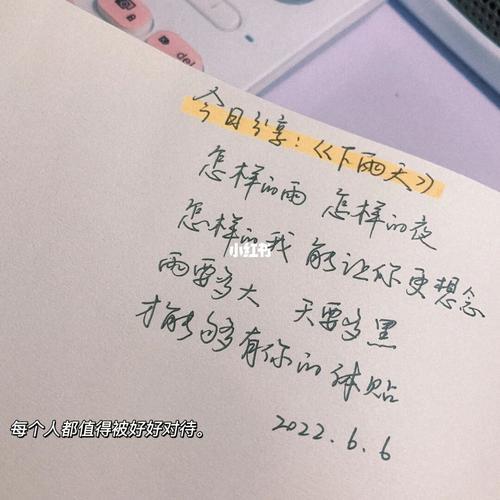 del
今日分享：《下雨天》
怎样的雨 怎样的夜
怎样的我 能让你更想念
小红书
雨要多大 天要多黑
才能够有你的体贴
2022.6.6
每个人都值得被好好对待。